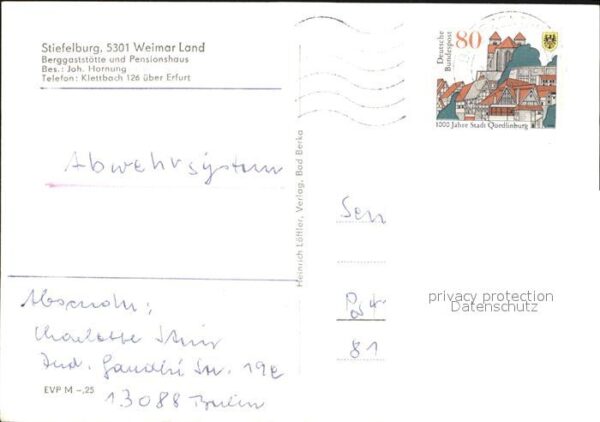 Stiefelburg, 5301 Weimar Land
Berggaststätte und Pensionshaus
Bes.: Joh. Hornung
Telefon: Klettbach 126 über Erfurt
Deutsche
Bundespost
80
1000 Jahre Stadt Quedlinburg
Abwehrsystem
Heinrich Löffler, Verlag, Bad Berka
Sen
81
privacy protection
Datenschutz
Absender:
Charlotte
Ind. Gandhi Str. 19c
13088 Berlin
EVP M –,25